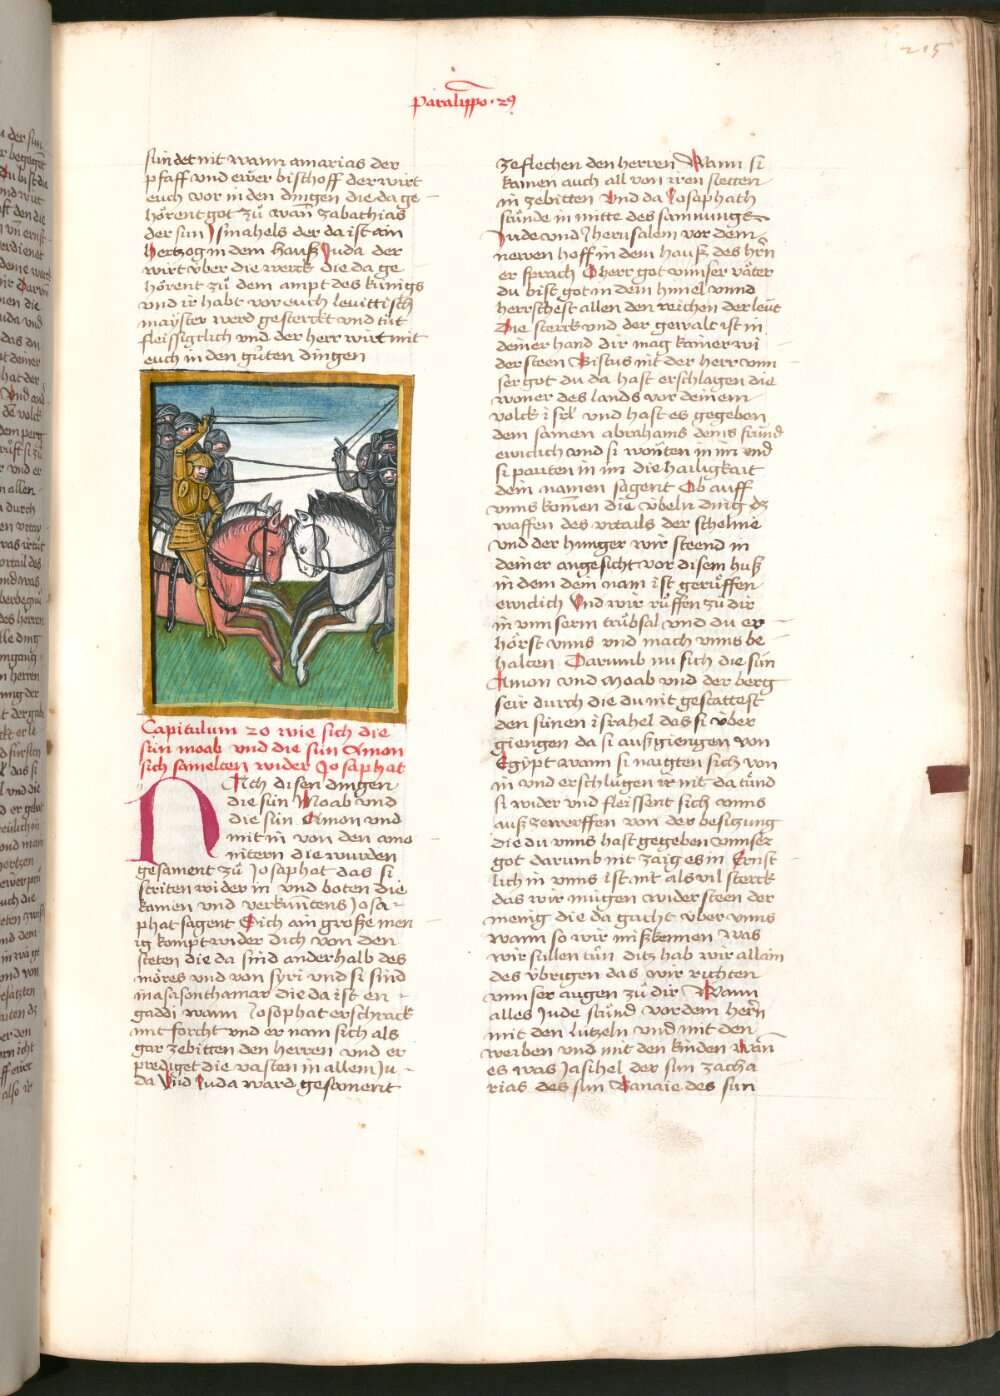 215
Paralippo · 29
sündet nit wann amarias der
pfaff vnd ewer bischoff der wirt
euch vor in den dingen die da ge
hörent got zů wañ zabathias
der sun Ismahels der da ist ain
hertzog in dem hauß Juda der
wirt v̈ber die werck die da ge
hörent zů dem ampt des künigs
vnd ir habt vor euch leuittisch
mayster werd gesterckt vnd tůt
fleissigclich vnd der herr wirt mit
euch in den gůten dingen
Capitulum 20 wie sich die
sün moab vnd die sün Amon
sich samelten wider Josaphat
Nach disen dingen
die sün Moab vnd
die sün Amon vnd
mit in von den amo
nitern die wurden
gesament zů Josaphat das si
striten wider in vnd boten die
kamen vnd verkuntens Josa
phat sagent Sich ain große men
ig kompt wider dich von den
steten die da sind anderhalb des
möres vnd von syri vnd si sind
in asasonthamar die da ist en
gaddi wann Josaphat erschrack
mit forcht vnd er nam sich als
gar ze bitten den herren vnd er
prediget die vasten in allem Ju
da Vnd Juda ward gesament
ze flechen den herren Wann si
kamen auch all von iren stetten
in ze bitten Vnd da Josaphath
stůnde in mitte des samnungs
Jude vnd Jherusalem vor dem
newen hoff in dem hauß des hr̃n
er sprach O herr got vnnser väter
du bist got in dem himel vnnd
herrschest allen den reichen der leut
Die sterck vnd der gewalt ist in
deiner hand dir mag kainer wi
der steen Bistus nit der herr vnn
ser got du da hast erschlagen die
woner des lands vor deinem
volck isr̃l vnd hast es gegeben
dem samen abrahams deins fründ
ewiclich vnd si wonten in im vnd
si pauten in im die hailigkait
dein namen sagent Ob auff
vnns komen die v̈beln ding dz
waffen des vrtails der schelme
vnd der hunger wir steend in
deiner angesicht vor disem huß
in dem dein nam ist gerůffen
ewiclich Vnd wir růffen zů dir
in vnnserm trůbsal vnd du er
hörst vnns vnd mach vnns be
halten Darumb nu sich die sün
Amon vnd Moab vnd der berg
seir durch die du nit gestattest
den sünen israhel das si v̈ber
giengen da si außgiengen von
Egipt wann si naigten sich von
in vnd erschlůgen ir nit da tůnd
si wider vnd fleissent sich vnns
auß zewerffen von der besitzung
die du vnns hast gegeben vnnser
got darumb nit zaig es in Ernst
lich in vnns ist nit als vil sterck
das wir mügen widersteen der
menig die da gacht v̈ber vnns
wann so wir mißkennen was
wir süllen tůn ditz hab wir allain
des v̈brigen das wir richten
vnnser augen zů dir Wann
alles Jude stůnd vor dem herr̃n
mit den lützeln vnd mit den
weiben vnd mit den kinden Wañ
es was Jasihel der sun zacha
rias des sun Banaie des sun